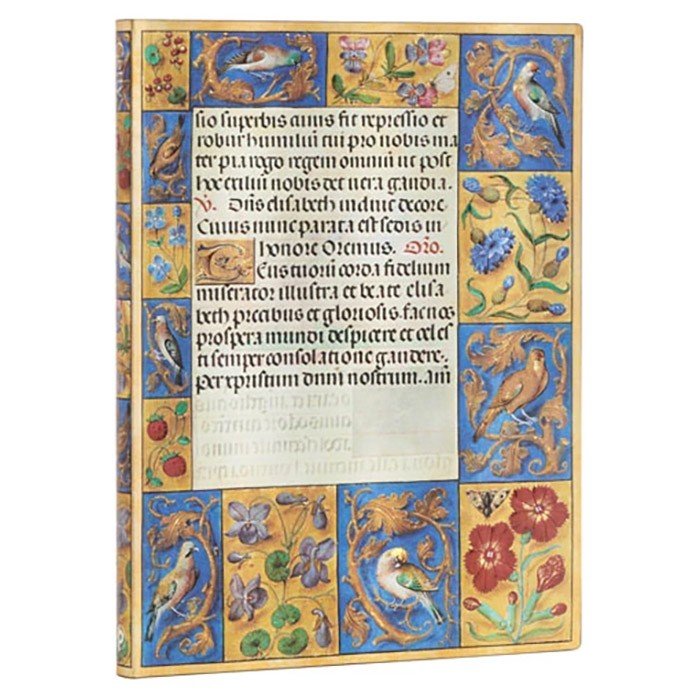 sio superbis auus fit repressio et
robur humiliũ tui pro nobis ma
ter pia rogo regem omniũ ut post
hoc exiliũ nobis det uera gaudia.
V. Dñs elisabeth induit decore
Cuius nunc parata est sedis in
honore Oremus. Orõ.
Tuorũ corda fidelium
miserator illustra et beate elisa
beth precibus et gloriosis fac nos
prospera mundi despicere et celes
ti semper consolatione gaudere.
Per xpristum dnm nostrum. am